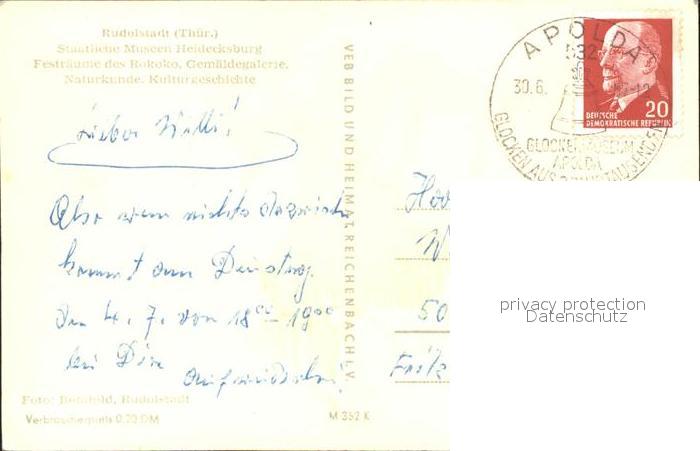 Rudolstadt (Thür.)
Staatliche Museen Heidecksburg
Festräume des Rokoko, Gemäldegalerie,
Naturkunde, Kulturgeschichte
Lieber Willi!
Also wenn nichts dazwischen
kommt am Dienstag
den 4. 7. von 18⁰⁰ - 19⁰⁰
bei Dir
Aufwiedersehn!
Foto: Rudolstadt
Verbraucherpreis 0,20 DM
VEB BILD UND HEIMAT, REICHENBACH I. V.
M 352 K
APOLDA
532
30.6.
GLOCKENMUSEUM
APOLDA
GLOCKEN AUS
DEUTSCHE
DEMOKRATISCHE REPUBLIK
20
W
50
Fritz
privacy protection
Datenschutz